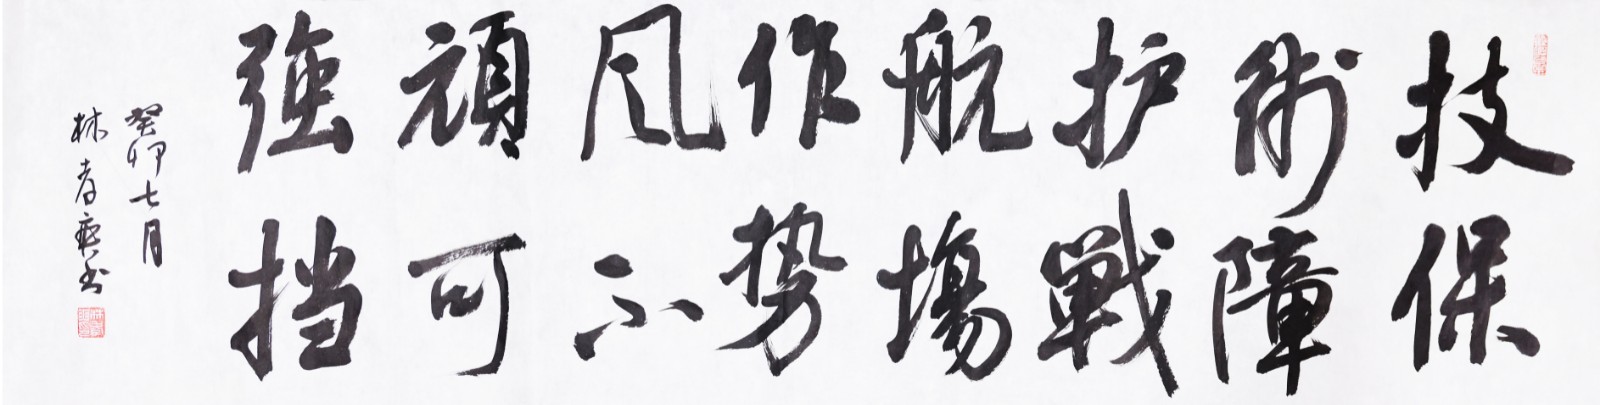 技術护航作风頑強
保障戰塲势不可挡
癸卯七月
林
书